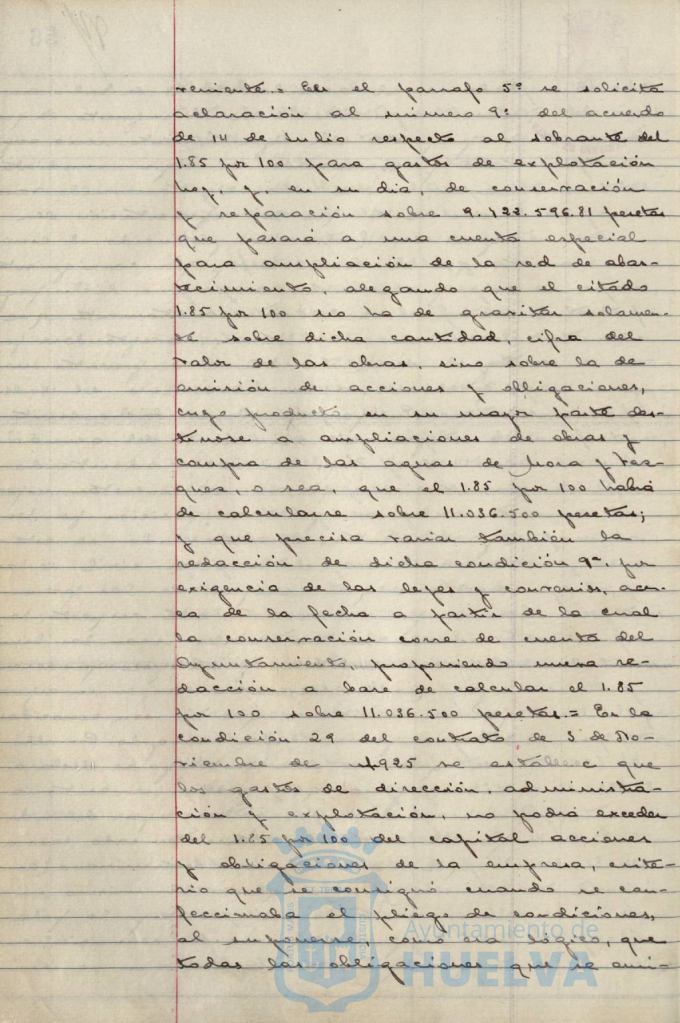 veniente.= En el parrafo 5º se solicita
aclaración al número 9º del acuerdo
de 14 de Julio respecto al sobrante del
1.85 por 100 para gastos de explotación
hoy, y, en su dia, de conservación
y reparación sobre 9.722.596.81 pesetas
que pasará a una cuenta especial
para ampliación de la red de abas-
tecimiento, alegando que el citado
1.85 por 100 no ha de gravitar solamen-
te sobre dicha cantidad, cifra del
valor de las obras, sino sobre la de
emisión de acciones y obligaciones,
cuyo producto en su mayor parte des-
tinose a ampliaciones de obras y
compra de las aguas de Mora y
o sea, que el 1.85 por 100 habrá
de calcularse sobre 11.036.500 pesetas;
y que precisa variar también la
redacción de dicha condición 9ª, por
exigencia de las leyes y convenios, acer-
ca de la fecha a partir de la cual
la conservación corre de cuenta del
Ayuntamiento, proponiendo nueva re-
dacción a base de calcular el 1.85
por 100 sobre 11.036.500 pesetas.= En la
condición 29 del contrato de 3 de No-
viembre de 1925 se establece que
los gastos de dirección, administra-
ción y explotación, no podrá exceder
del 1.85 por 100 del capital acciones
y obligaciones de la empresa, crite-
rio que se consignó cuando se con-
feccionaba el pliego de condiciones,
al suponerse, como era lógico, que
todas las obligaciones que se emi-
Ayuntamiento de
HUELVA